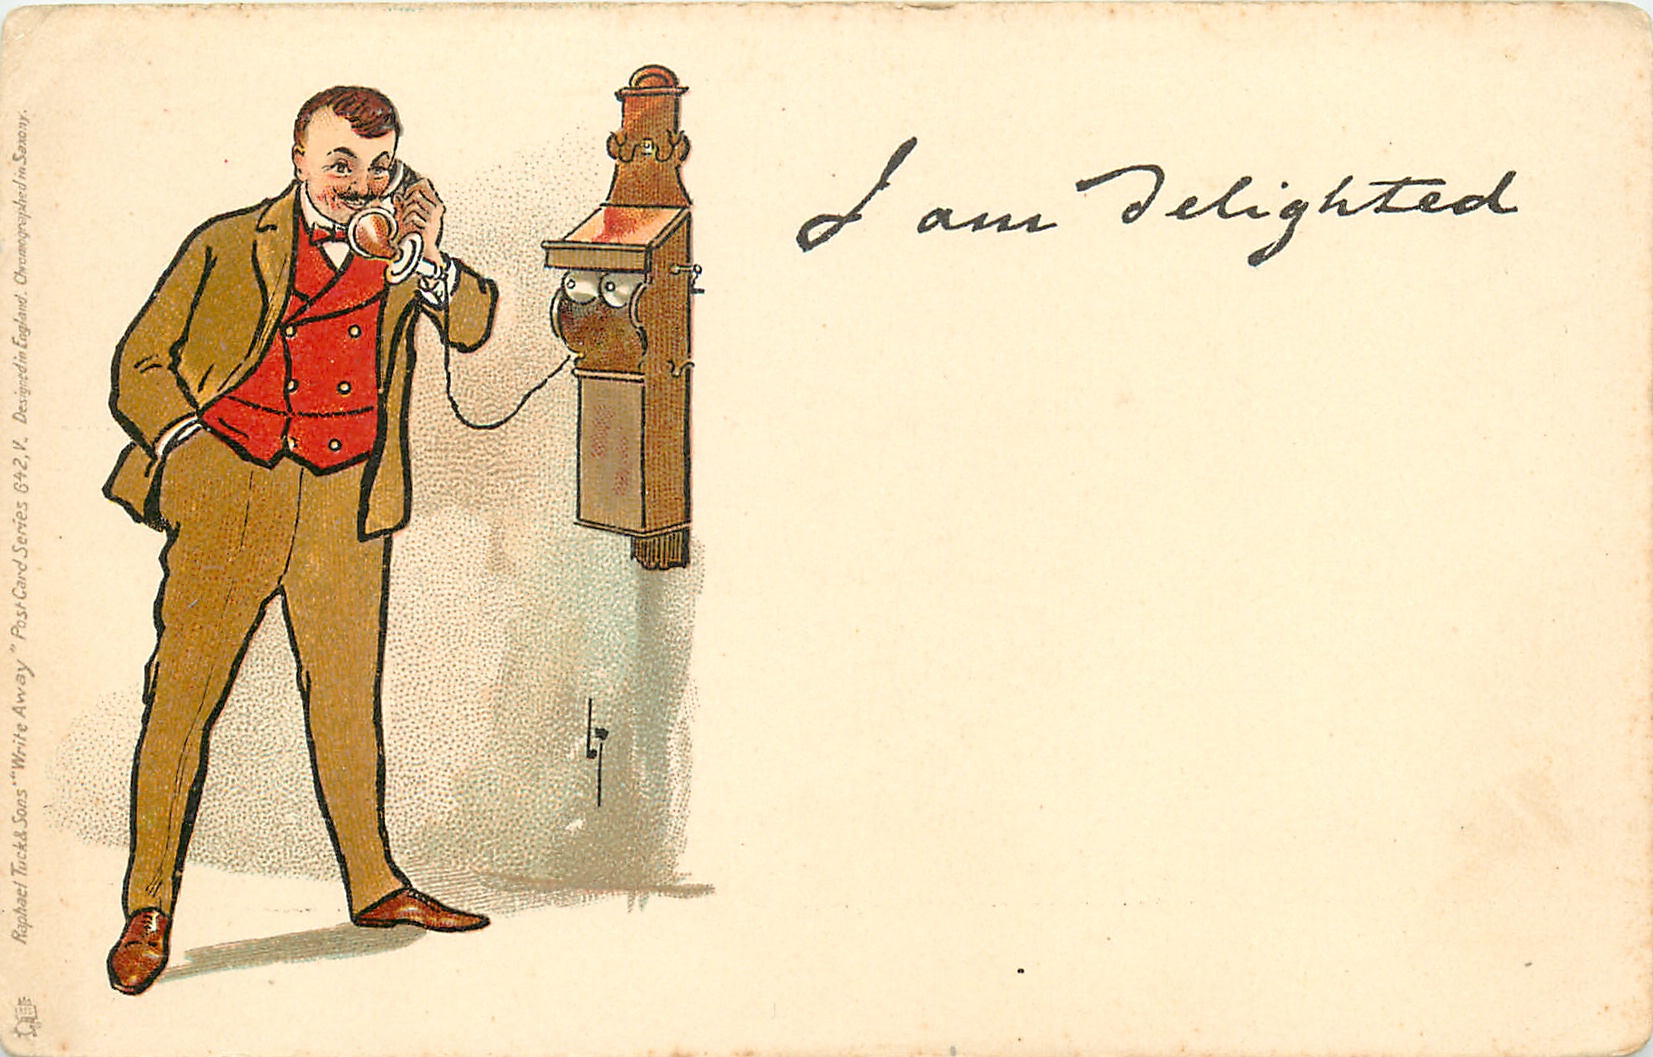 I am delighted
Raphael Tuck & Sons' "Write Away" Post Card Series 642, V. Designed in England. Chromographed in Saxony.